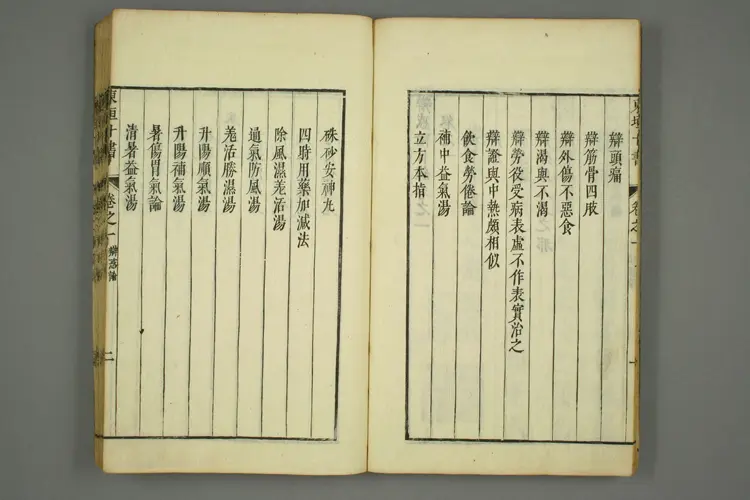 東垣十書
卷之一
辯頭痛
辯筋骨四肢
辯外傷不惡食
辯渴與不渴
辯勞役受病表虛不作表實治之
辯證與中熱頗相似
飲食勞倦論
補中益氣湯
立方本指
硃砂安神丸
四時用藥加減法
除風濕羌活湯
通氣防風湯
羌活勝濕湯
升陽順氣湯
升陽補氣湯
暑傷胃氣論
清暑益氣湯
東垣十書
卷之一
辯惑論
二